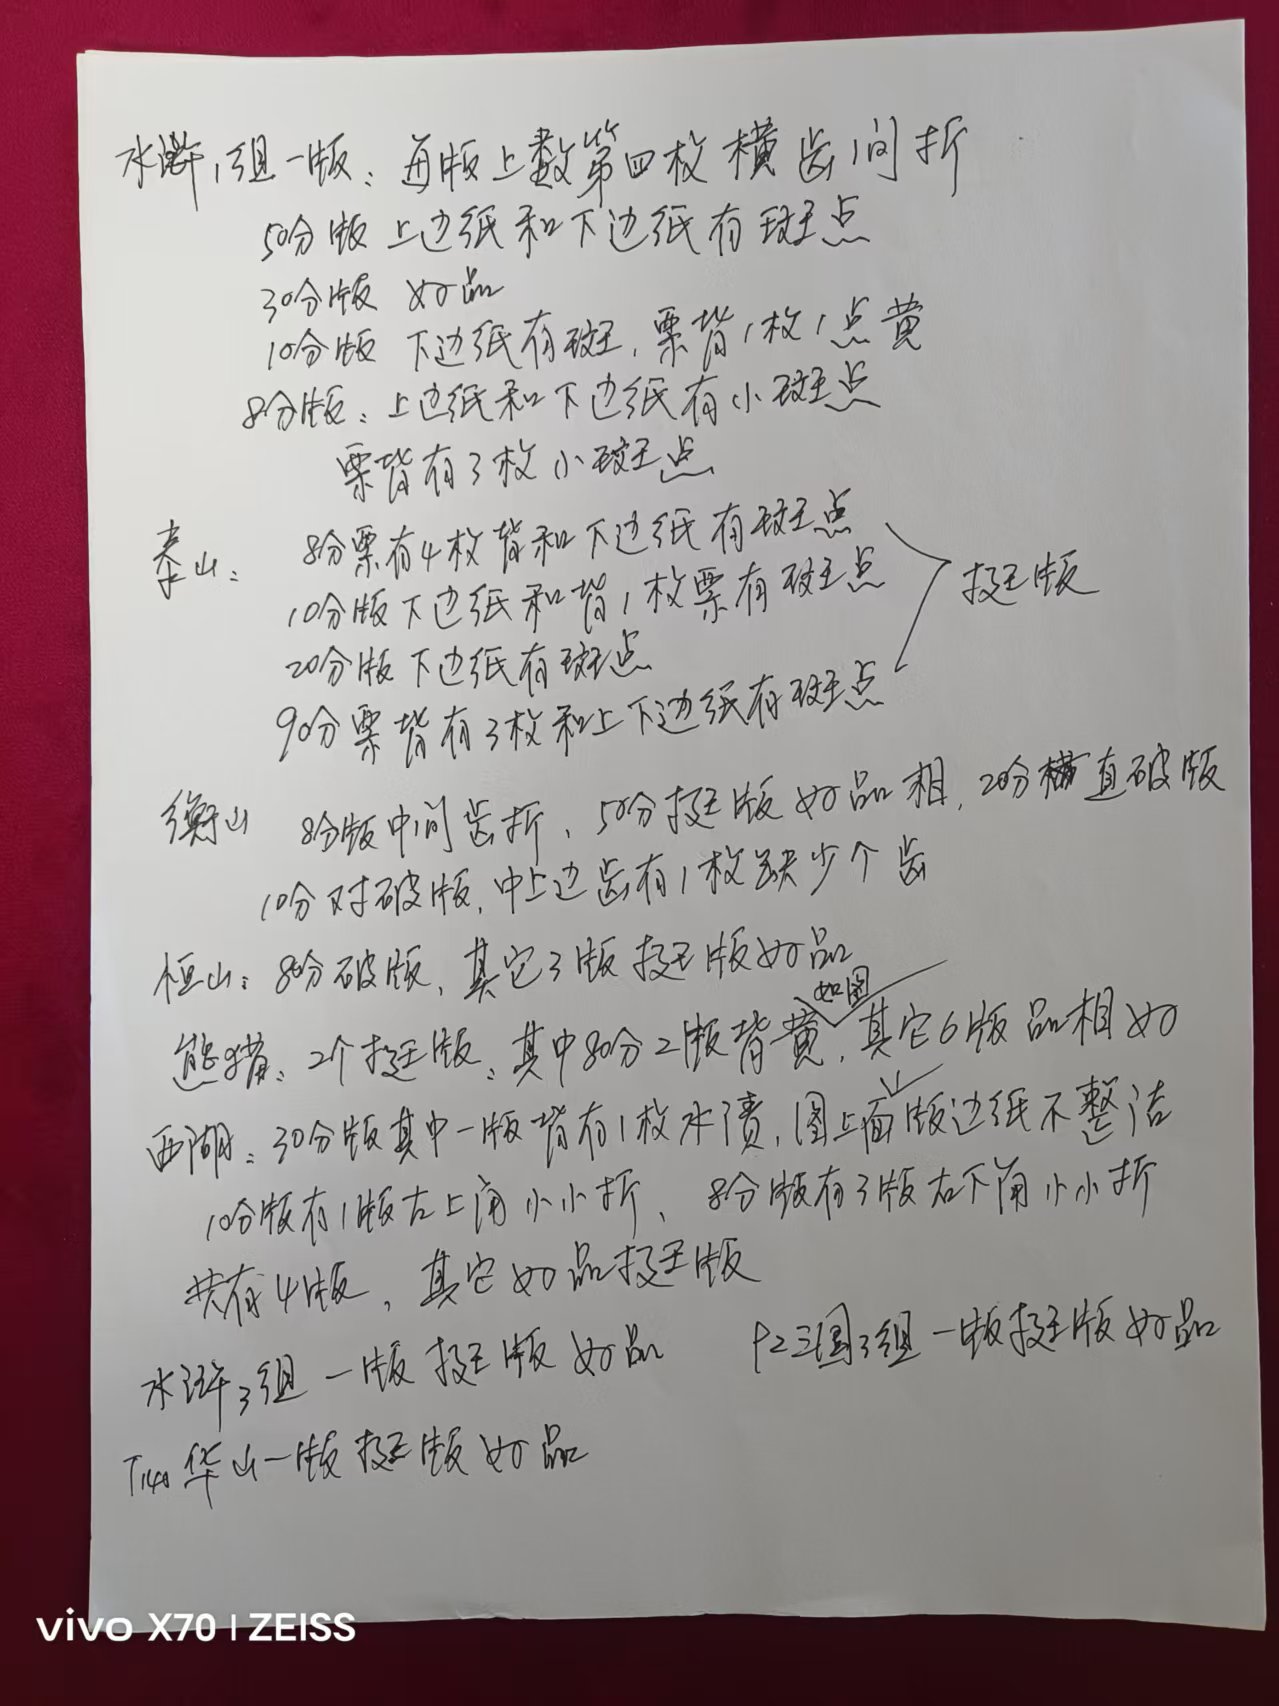 水浒1组一版：每版上数第四枚横齿间折
50分版上边纸和下边纸有斑点
30分版 好品
10分版 下边纸有斑，票背1枚1点黄
8分版：上边纸和下边纸有小斑点
票背有3枚小斑点
泰山： 8分票有4枚背和下边纸有斑点
10分版下边纸和背1枚票有斑点
挺版
20分版下边纸有斑点
90分票背有3枚和上下边纸有斑点
衡山 8分版中间齿折、50分挺版好品相，20分横直破版
10分对破版，中上边齿有1枚缺少个齿
恒山：80分破版，其它3版挺版好品
如图
熊猫：2个挺版，其中80分2版背黄，其它6版品相好
西湖：30分版其中一版背有1枚水渍，图上面版边纸不整洁
10分版有1版右上角小小折、8分版有3版右下角小小折
共有4版，其它好品挺版
水浒3组一版挺版好品 三国3组一版挺版好品
T140华山一版挺版好品
vivo X70 | ZEISS